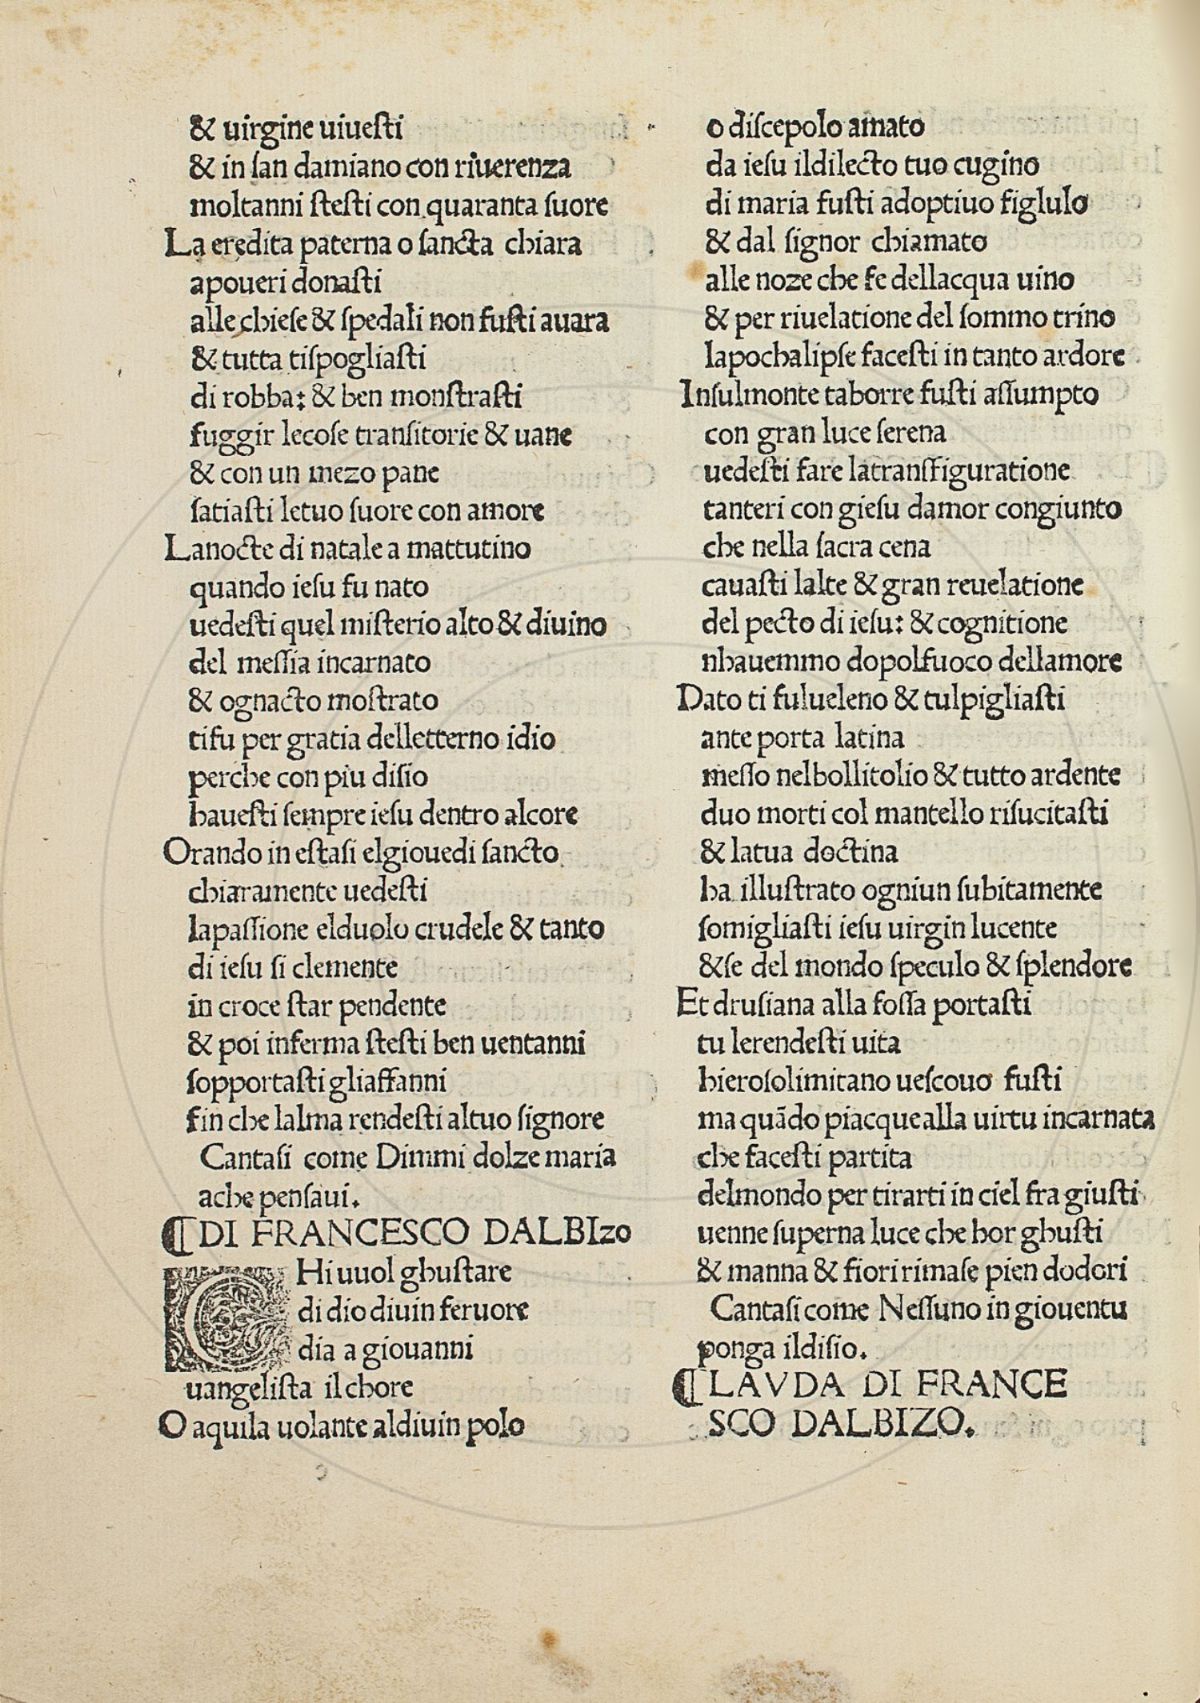 & uirgine uiuesti
& in san damiano con riuerenza
moltanni stesti con quaranta suore
La eredita paterna o sancta chiara
apoueri donasti
alle chiese & spedali non fusti auara
& tutta tispogliasti
di robba: & ben monstrasti
fuggir lecose transitorie & uane
& con un mezo pane
satiasti letuo suore con amore
Lanocte di natale a mattutino
quando iesu fu nato
uedesti quel misterio alto & diuino
del messia incarnato
& ognacto mostrato
tifu per gratia delletterno idio
perche con piu disio
hauesti sempre iesu dentro alcore
Orando in estasi elgiouedi sancto
chiaramente uedesti
lapassione elduolo crudele & tanto
di iesu si clemente
in croce star pendente
& poi inferma stesti ben uentanni
sopportasti gliaffanni
fin che lalma rendesti altuo signore
Cantasi come Dimmi dolze maria
ache pensaui.
¶DI FRANCESCO DALBIzo
CHi uuol ghustare
di dio diuin feruore
dia a giouanni
uangelista il chore
O aquila uolante aldiuin polo
o discepolo amato
da iesu ildilecto tuo cugino
di maria fusti adoptiuo figlulo
& dal signor chiamato
alle noze che fe dellacqua uino
& per riuelatione del sommo trino
lapochalipse facesti in tanto ardore
Insulmonte taborre fusti assumpto
con gran luce serena
uedesti fare latransfiguratione
tanteri con giesu damor congiunto
che nella sacra cena
cauasti lalte & gran reuelatione
del pecto di iesu: & cognitione
nhauemmo dopolfuoco dellamore
Dato ti fulueleno & tulpigliasti
ante porta latina
messo nelbollitolio & tutto ardente
duo morti col mantello risucitasti
& latua doctina
ha illustrato ogniun subitamente
somigliasti iesu uirgin lucente
&se del mondo speculo & splendore
Et drusiana alla fossa portasti
tu lerendesti uita
hierosolimitano uescouo fusti
ma quãdo piacque alla uirtu incarnata
che facesti partita
delmondo per tirarti in ciel fra giusti
uenne superna luce che hor ghusti
& manna & fiori rimase pien dodori
Cantasi come Nessuno in giouentu
ponga ildisio.
¶LAVDA DI FRANCE
SCO DALBIZO.